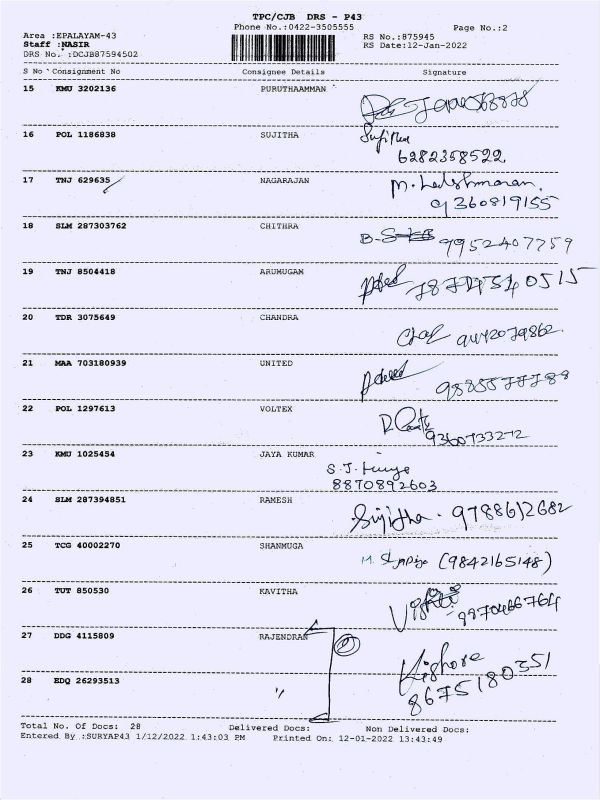 TPC/CJB DRS - P43
Phone No.:0422-3505555 Page No.:2
Area :EPALAYAM-43 RS No.:875945
Staff :NASIR RS Date:12-Jan-2022
DRS No. :DCJB87594502
S No Consignment No Consignee Details Signature
15 KMU 3202136 PURUTHAAMMAN
16 POL 1186838 SUJITHA Sujitha
6282358522
17 TNJ 629635 NAGARAJAN M. Lakshmanan.
9360819155
18 SLM 287303762 CHITHRA B-S 9952407759
19 TNJ 8504418 ARUMUGAM
20 TDR 3075649 CHANDRA 9442079862
21 MAA 703180939 UNITED
22 POL 1297613 VOLTEX
9360733272
23 KMU 1025454 JAYA KUMAR S.J.
8870892603
24 SLM 287394851 RAMESH Sujitha. 9788612682
25 TCG 40002270 SHANMUGA M. (9842165148)
26 TUT 850530 KAVITHA
27 DDG 4115809 RAJENDRAN Kishore
28 EDQ 26293513 " 8675180351
Total No. Of Docs: 28 Delivered Docs: Non Delivered Docs:
Entered By :SURYAP43 1/12/2022 1:43:03 PM Printed On: 12-01-2022 13:43:49